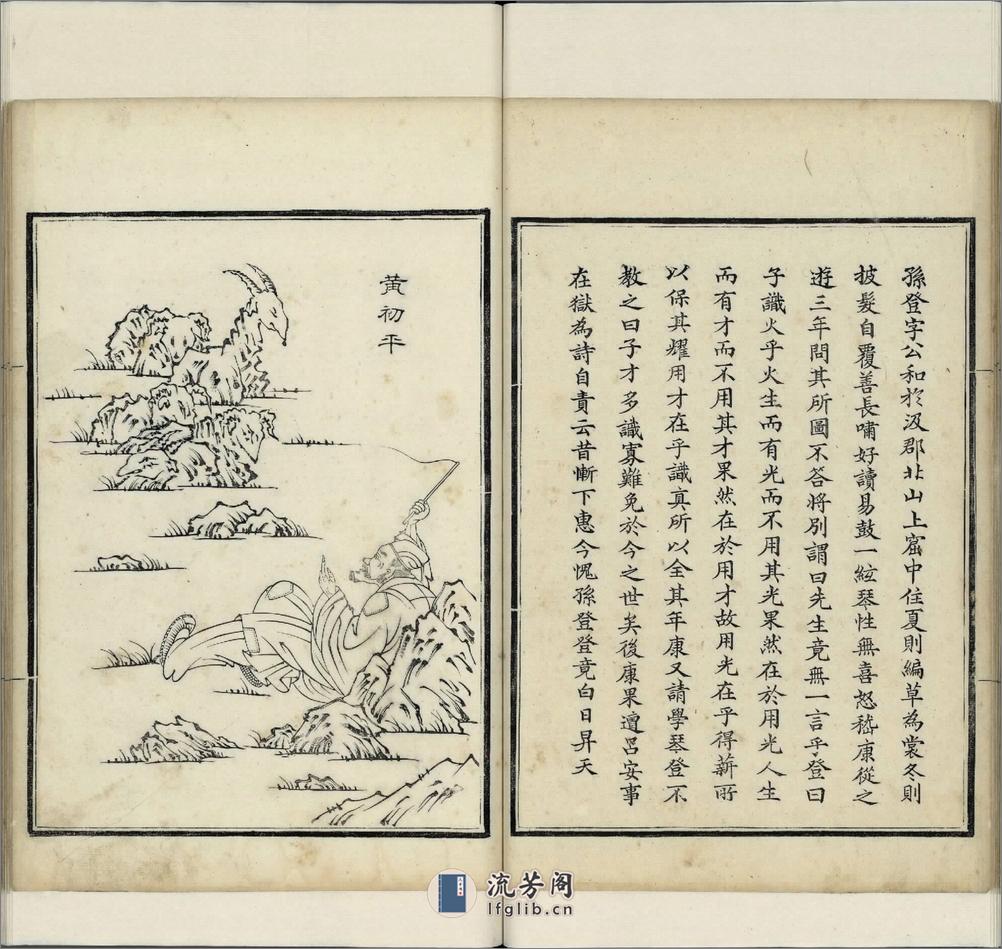 孫登字公和於汲郡北山上窟中住夏則編草為裳冬則
披髮自覆善長嘯好讀易鼓一絃琴性無喜怒嵇康從之
遊三年問其所圖不答將別謂曰先生竟無一言乎登曰
子識火乎火生而有光而不用其光果然在於用光人生
而有才而不用其才果然在於用才故用光在乎得薪所
以保其耀用才在乎識真所以全其年康又請學琴登不
教之曰子才多識寡難免於今之世矣後康果遭呂安事
在獄為詩自責云昔慚下惠今愧孫登登竟白日昇天
黃初平
流芳阁
lfglib.cn